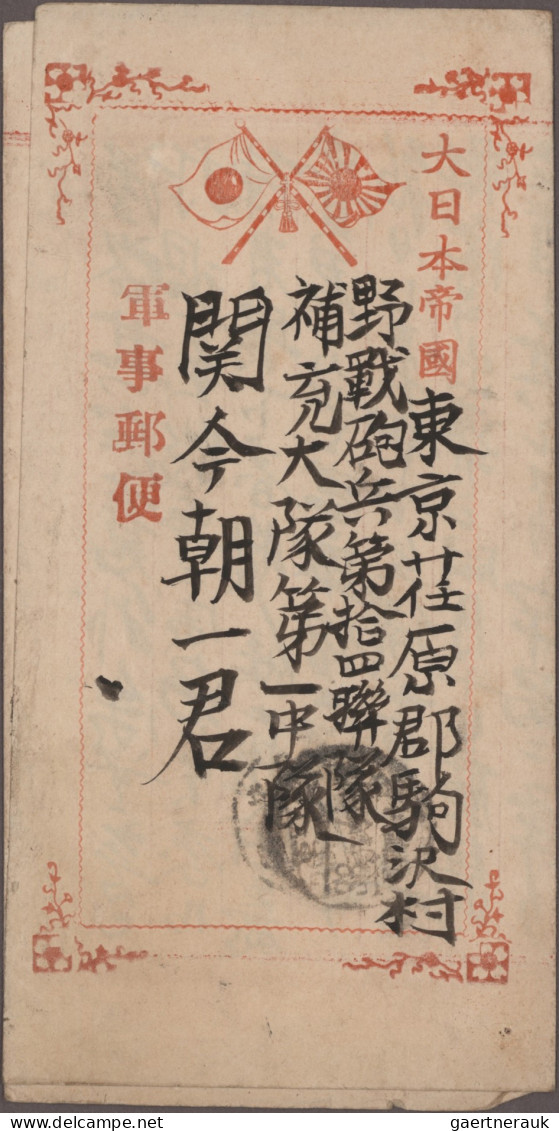 大日本帝國
東京荏原郡駒沢村
野戰砲兵第拾四聯隊
補充大隊第一中隊
関今朝一君
軍事郵便
gaertnerauk